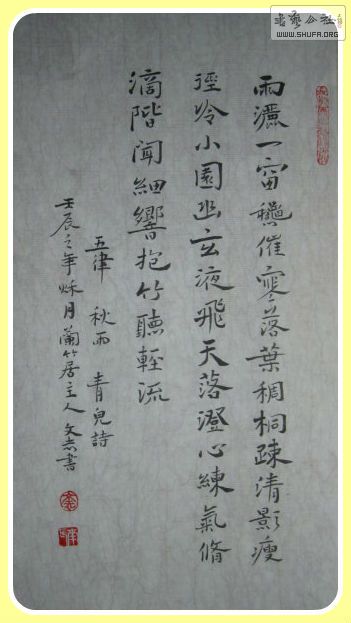 書藝公社
WWW.SHUFA.ORG
雨灑一窗龝催寒落葉稠桐疎清影瘦
徑冷小園幽玄液飛天落澄心練氣脩
滴階聞細響抱竹聽輕流
五律 秋雨 青兒詩
壬辰之年穌月蘭竹居主人文志書